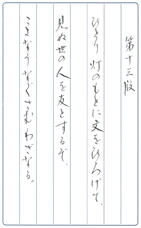 第十三段
ひとり灯のもとに文をひろげて、
見ぬ世の人を友とするぞ、
こよなうなぐさむわざなる。